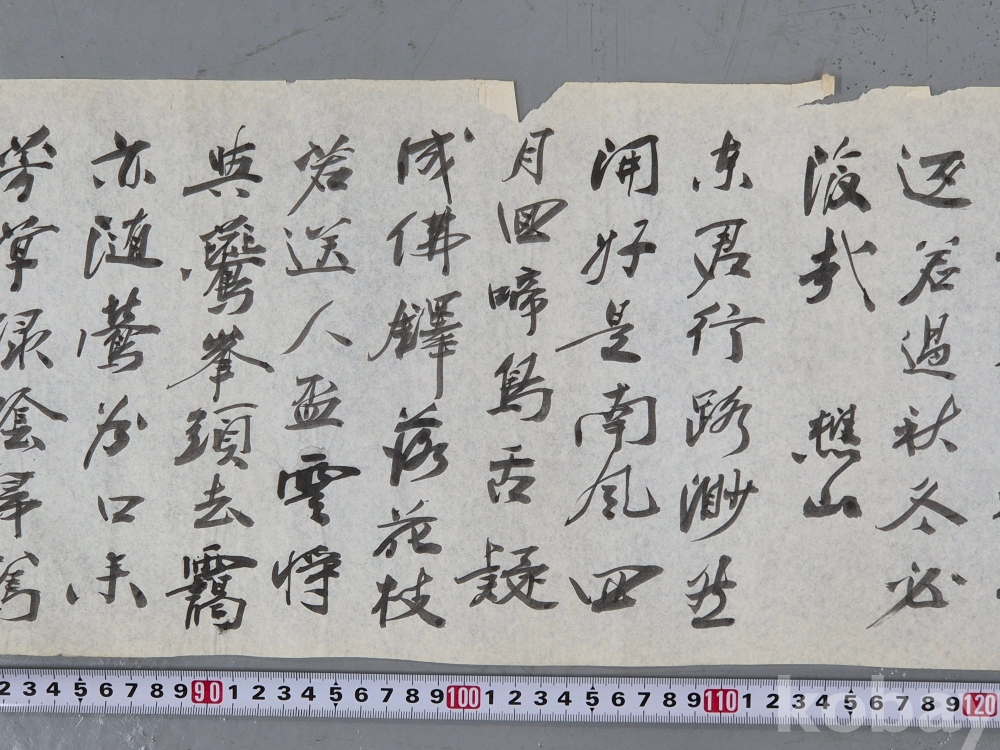 若過秋冬必
哉 樵山
東君行路渺然
開好是南風四
月回啼鳥舌疑
成佛鐸落花枝
若送人盃雲将
與鷲峯頭去靄
亦随鶯谷口来
芳草緑陰尋舊
2 3 4 5 6 7 8 9 90 1 2 3 4 5 6 7 8 9 100 1 2 3 4 5 6 7 8 9 110 1 2 3 4 5 6 7 8 9 120
koba